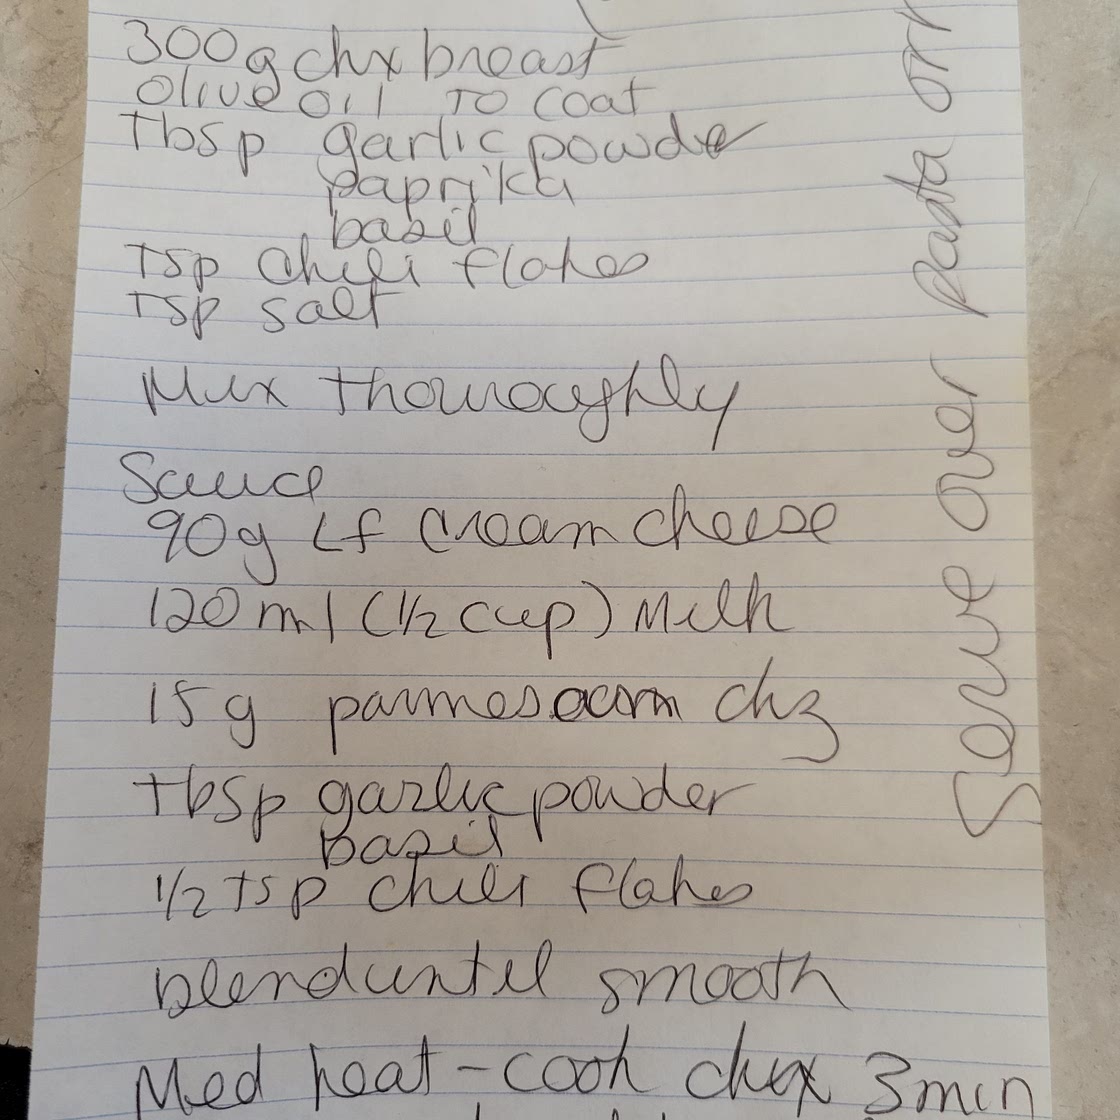 300g chx breast
olive oil to coat
Tbsp garlic powder
paprika
basil
Tsp chili flakes
Tsp salt
Mix thoroughly
Sauce
90g LF cream cheese
120 ml (1/2 cup) Milk
15 g parmesan chz
tbsp garlic powder
basil
1/2 tsp chili flakes
blend until smooth
Med heat - cook chx 3 min
Serve over pasta